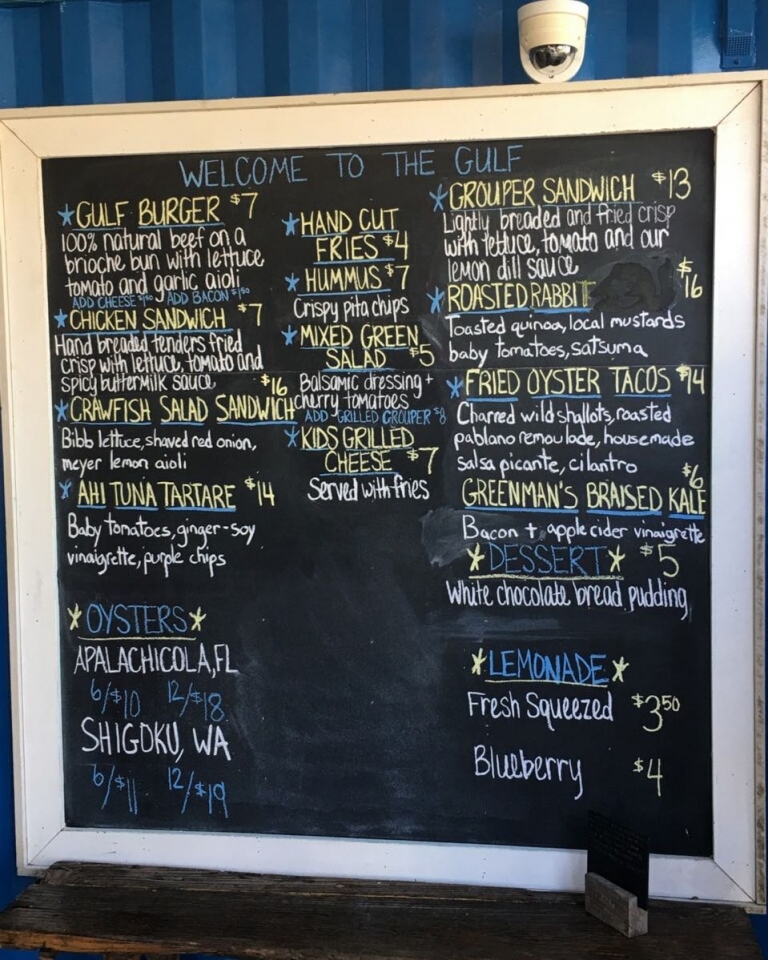 WELCOME TO THE GULF
*GULF BURGER $7
100% natural beef on a
brioche bun with lettuce
tomato and garlic aioli
ADD CHEESE $1.50 ADD BACON $1.50
*CHICKEN SANDWICH $7
Hand breaded tenders fried
crisp with lettuce, tomato and
spicy buttermilk sauce
$16
*CRAWFISH SALAD SANDWICH
Bibb lettuce, shaved red onion,
meyer lemon aioli
*AHI TUNA TARTARE $14
Baby tomatoes, ginger-soy
vinaigrette, purple chips
*OYSTERS*
APALACHICOLA, FL
6/$10 12/$18
SHIGOKU, WA
6/$11 12/$19
*HAND CUT
FRIES $4
*HUMMUS $7
Crispy pita chips
*MIXED GREEN
SALAD $5
Balsamic dressing +
cherry tomatoes
ADD GRILLED GROUPER $8
*KIDS GRILLED
CHEESE $7
Served with fries
*GROUPER SANDWICH $13
Lightly breaded and fried crisp
with lettuce, tomato and our
lemon dill sauce
*ROASTED RABBIT $16
Toasted quinoa, local mustards
baby tomatoes, satsuma
*FRIED OYSTER TACOS $14
Charred wild shallots, roasted
pablano remoulade, housemade
salsa picante, cilantro
$6
GREENMAN'S BRAISED KALE
Bacon + apple cider vinaigrette
*DESSERT* $5
White chocolate bread pudding
*LEMONADE*
Fresh Squeezed $3.50
Blueberry $4